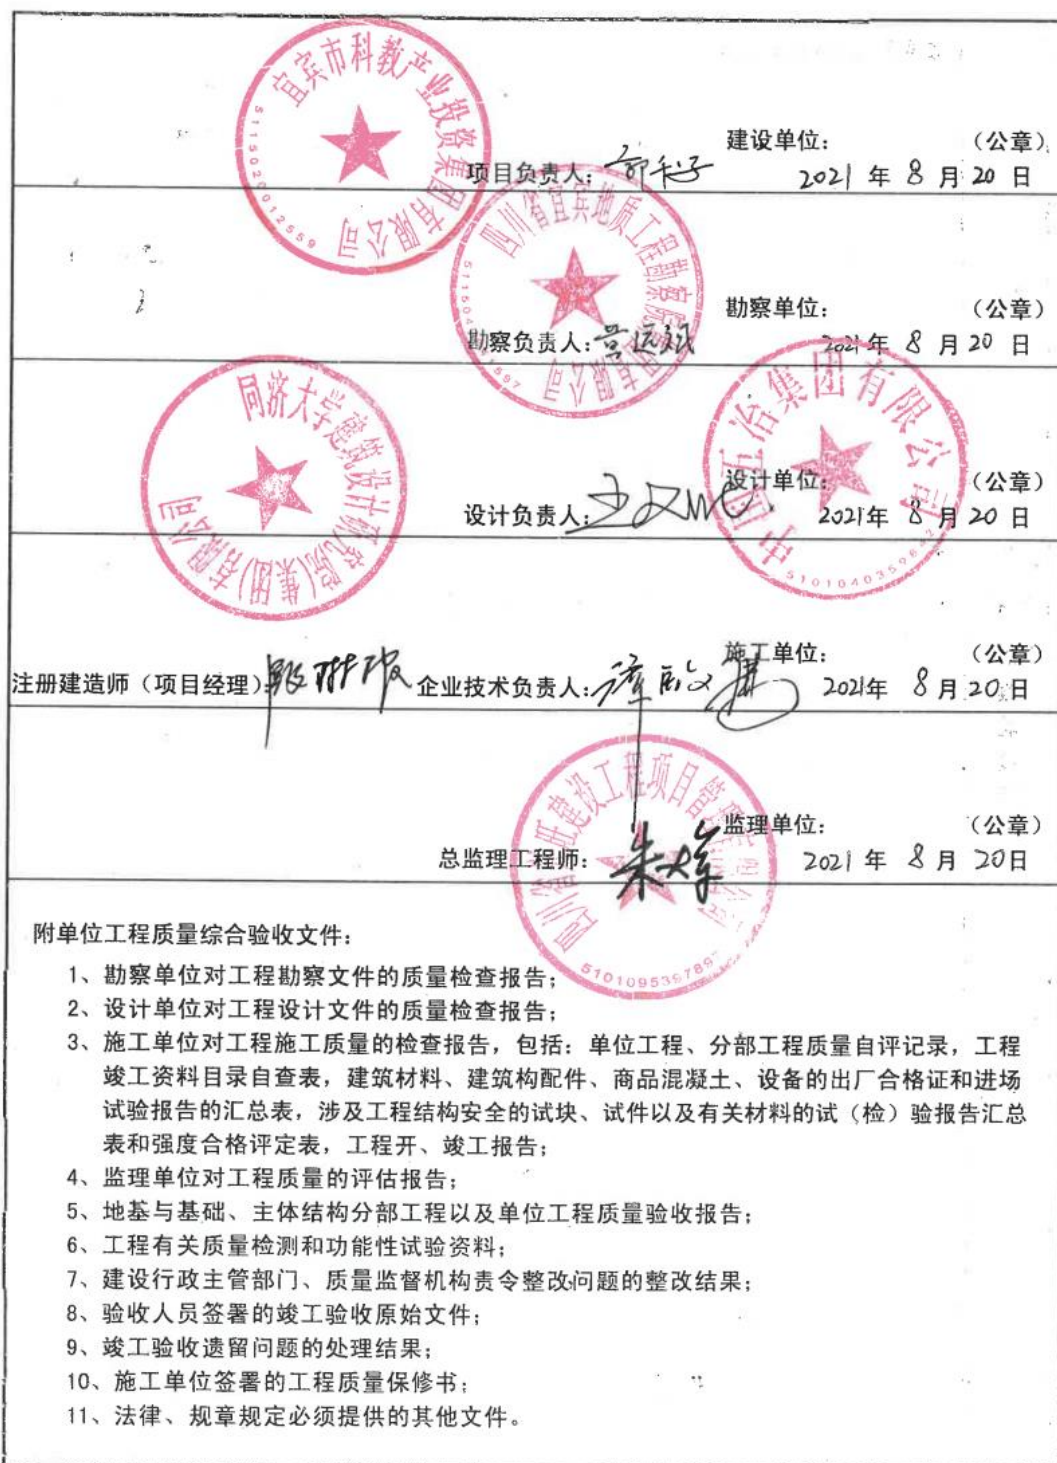 宜宾市科教产业投资集团有限公司
5115020012559
建设单位: (公章)
项目负责人: 2021 年 8 月 20 日
四川省宜宾地质工程勘察院有限公司
勘察单位: (公章)
勘察负责人: 2021年 8 月 20 日
同济大学建筑设计研究院(集团)有限公司
中国五冶集团有限公司
设计单位: (公章)
设计负责人: 2021年 8 月 20 日
施工单位: (公章)
注册建造师(项目经理) 企业技术负责人: 2021年 8 月 20 日
建设工程项目管理
监理单位: (公章)
总监理工程师: 2021 年 8 月 20日
附单位工程质量综合验收文件:
1、勘察单位对工程勘察文件的质量检查报告;
2、设计单位对工程设计文件的质量检查报告;
3、施工单位对工程施工质量的检查报告, 包括: 单位工程、分部工程质量自评记录, 工程
竣工资料目录自查表, 建筑材料、建筑构配件、商品混凝土、设备的出厂合格证和进场
试验报告的汇总表, 涉及工程结构安全的试块、试件以及有关材料的试(检)验报告汇总
表和强度合格评定表, 工程开、竣工报告;
4、监理单位对工程质量的评估报告;
5、地基与基础、主体结构分部工程以及单位工程质量验收报告;
6、工程有关质量检测和功能性试验资料;
7、建设行政主管部门、质量监督机构责令整改问题的整改结果;
8、验收人员签署的竣工验收原始文件;
9、竣工验收遗留问题的处理结果;
10、施工单位签署的工程质量保修书;
11、法律、规章规定必须提供的其他文件。